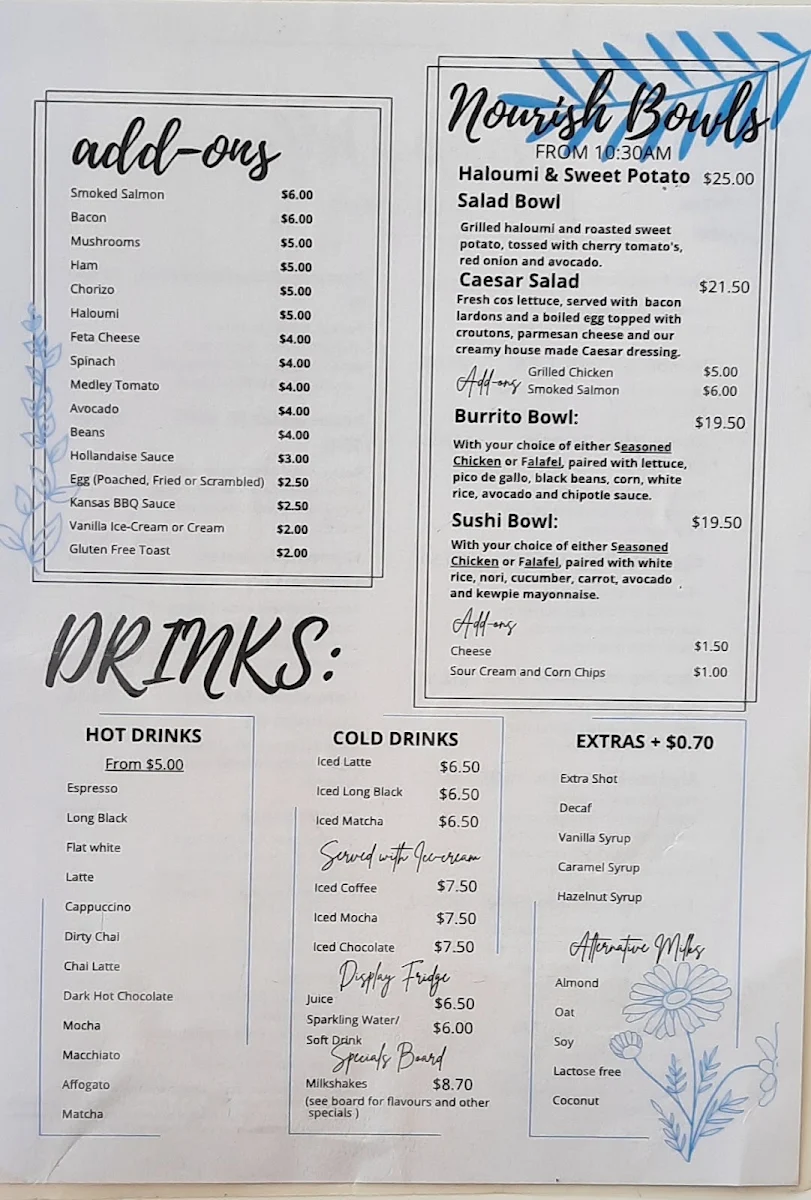 add-ons
Smoked Salmon $6.00
Bacon $6.00
Mushrooms $5.00
Ham $5.00
Chorizo $5.00
Haloumi $5.00
Feta Cheese $4.00
Spinach $4.00
Medley Tomato $4.00
Avocado $4.00
Beans $4.00
Hollandaise Sauce $3.00
Egg (Poached, Fried or Scrambled) $2.50
Kansas BBQ Sauce $2.50
Vanilla Ice-Cream or Cream $2.00
Gluten Free Toast $2.00
Nourish Bowls
FROM 10:30AM
Haloumi & Sweet Potato $25.00
Salad Bowl
Grilled haloumi and roasted sweet
potato, tossed with cherry tomato's,
red onion and avocado.
Caesar Salad $21.50
Fresh cos lettuce, served with bacon
lardons and a boiled egg topped with
croutons, parmesan cheese and our
creamy house made Caesar dressing.
Add-ons
Grilled Chicken $5.00
Smoked Salmon $6.00
Burrito Bowl: $19.50
With your choice of either Seasoned
Chicken or Falafel, paired with lettuce,
pico de gallo, black beans, corn, white
rice, avocado and chipotle sauce.
Sushi Bowl: $19.50
With your choice of either Seasoned
Chicken or Falafel, paired with white
rice, nori, cucumber, carrot, avocado
and kewpie mayonnaise.
Add-ons
Cheese $1.50
Sour Cream and Corn Chips $1.00
DRINKS:
HOT DRINKS
From $5.00
Espresso
Long Black
Flat white
Latte
Cappuccino
Dirty Chai
Chai Latte
Dark Hot Chocolate
Mocha
Macchiato
Affogato
Matcha
COLD DRINKS
Iced Latte $6.50
Iced Long Black $6.50
Iced Matcha $6.50
Served with Ice-cream
Iced Coffee $7.50
Iced Mocha $7.50
Iced Chocolate $7.50
Display Fridge
Juice $6.50
Sparkling Water/ $6.00
Soft Drink
Specials Board
Milkshakes $8.70
(see board for flavours and other
specials )
EXTRAS + $0.70
Extra Shot
Decaf
Vanilla Syrup
Caramel Syrup
Hazelnut Syrup
Alternative Milks
Almond
Oat
Soy
Lactose free
Coconut